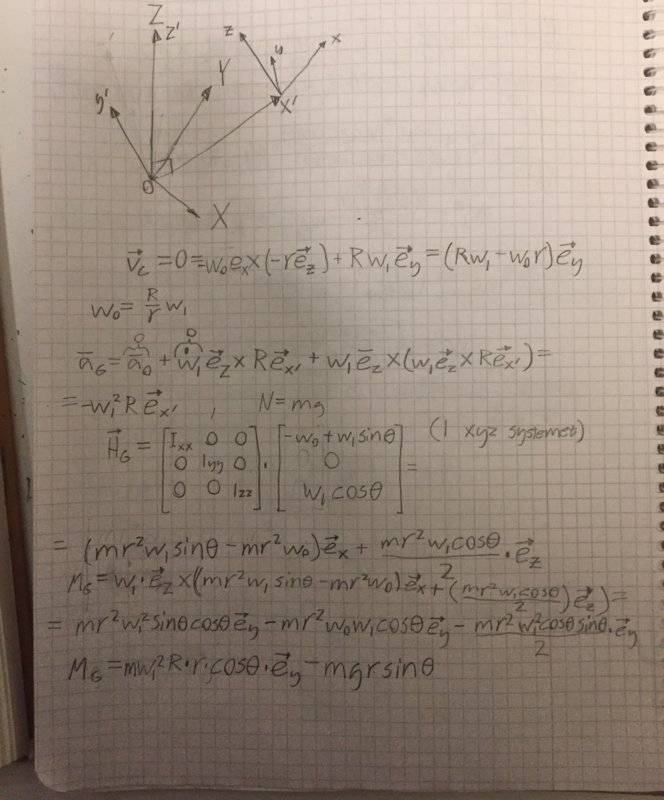 Z
Z'
z
y
x
y'
Y
X'
O
X
v⃗_c = 0 = w₀e_x×(-re⃗_z) + Rw₁e⃗_y = (Rw₁-w₀r)e⃗_y
w₀ = R/r w₁
0 0
a̅_G = a̅_0 + ẇ₁e⃗_Z × Re⃗_x' + w₁e̅_z × (w₁e⃗_z × Re⃗_x') =
= -w₁²Re⃗_x' , N = mg
H⃗_G = [I_xx 0 0; 0 I_yy 0; 0 0 I_zz] · [-w₀+w₁sinθ; 0; w₁cosθ] = (I xyz systemet)
= (mr²w₁sinθ - mr²w₀)e⃗_x + mr²w₁cosθ/2 · e⃗_z
M_G = w₁·e⃗_Z × ((mr²w₁sinθ - mr²w₀)e⃗_x + (mr²w₁cosθ/2)e⃗_z) =
= mr²w₁²sinθcosθe⃗_y - mr²w₀w₁cosθe⃗_y - mr²w₁²cosθsinθ/2 · e⃗_y
M_G = mw₁²R·r·cosθ·e⃗_y - mgrsinθ